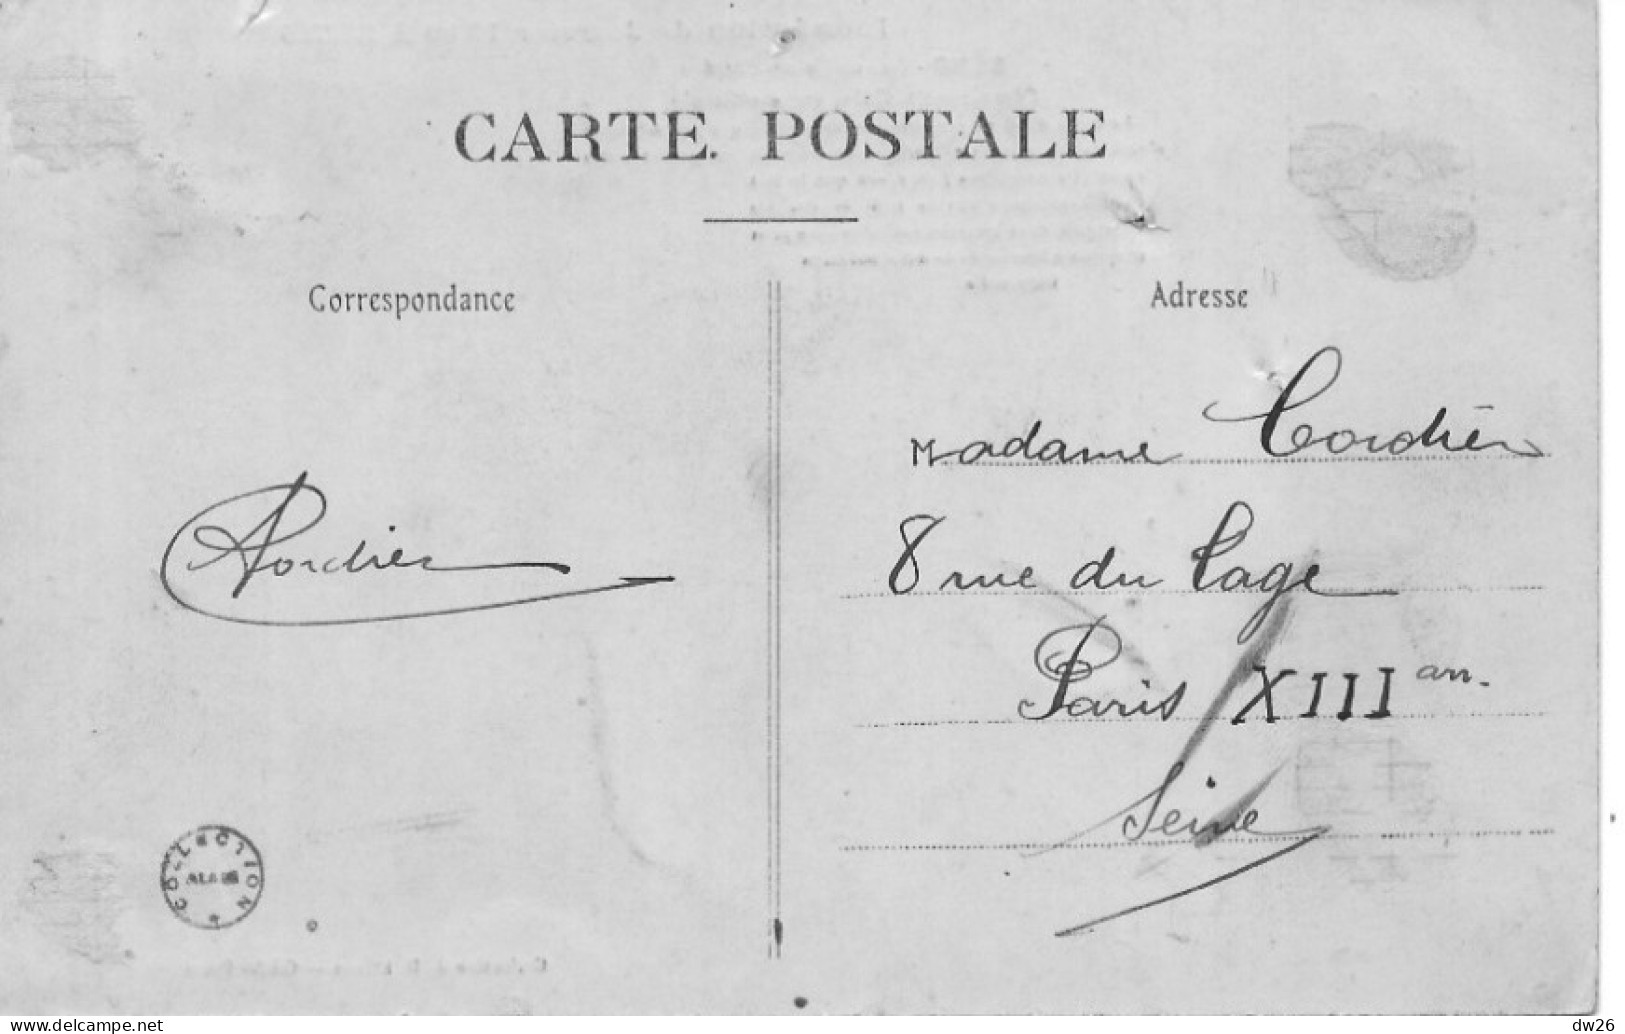 CARTE POSTALE
Correspondance
Adresse
Cordier
Madame Cordier
8 rue du Tage
Paris XIII an.
Seine
COLLECTION
https://www.delcampe.net
dw26